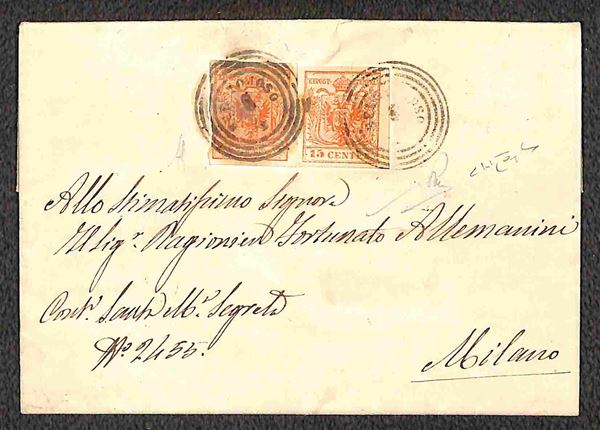 KREUZER
15 CENTES
Allo Stimatissimo Signore
Il Sigr. Ragioniere Fortunato Allemanini
Contr. Santa Ma. Segreta
No. 2455.
Milano